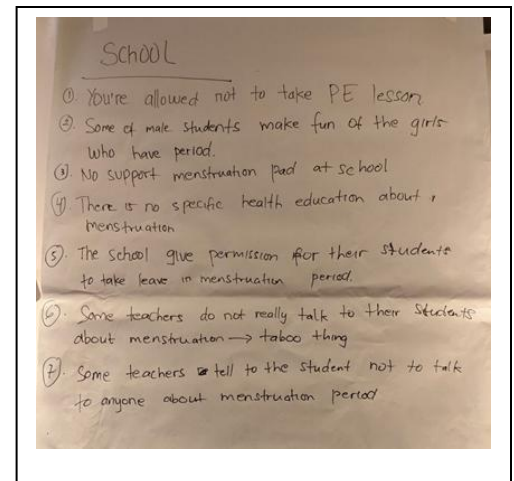 SCHOOL
①. You're allowed not to take PE lesson
②. Some of male students make fun of the girls
who have period.
③. No support menstruation pad at school
④. There is no specific health education about
menstruation
⑤. The school give permission for their students
to take leave in menstruation period.
⑥. Some teachers do not really talk to their students
about menstruation → taboo thing
⑦. Some teachers tell to the student not to talk
to anyone about menstruation period